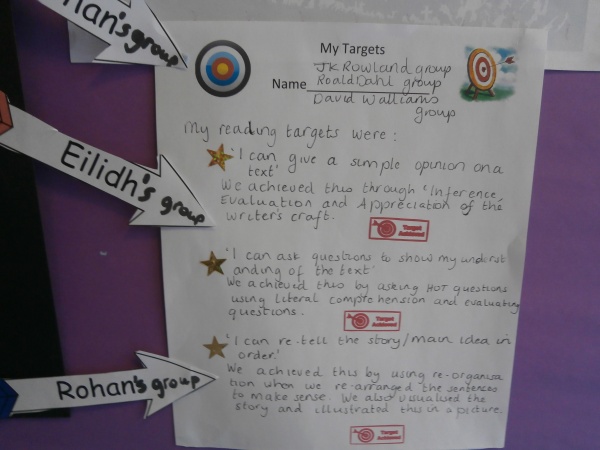 My Targets
JK Rowland group
Name Roald Dahl group
David Walliams
group
My reading targets were :
'I can give a simple opinion on a
text'
We achieved this through 'Inference,
Evaluation and Appreciation of the
Writer's craft.
Target
Achieved
'I can ask questions to show my underst
anding of the text'
We achieved this by asking HOT questions
using literal comprehension and evaluating
questions.
Target
Achieved
'I can re-tell the story/main idea in
order.'
We achieved this by using re-organisa
tion when we re-arranged the sentences
to make sense. We also visualised the
story and illustrated this in a picture.
Target
Achieved
group
Eilidh's group
Rohan's group